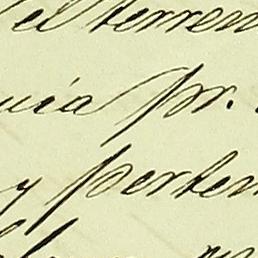 el terren
uia pr.
y perten